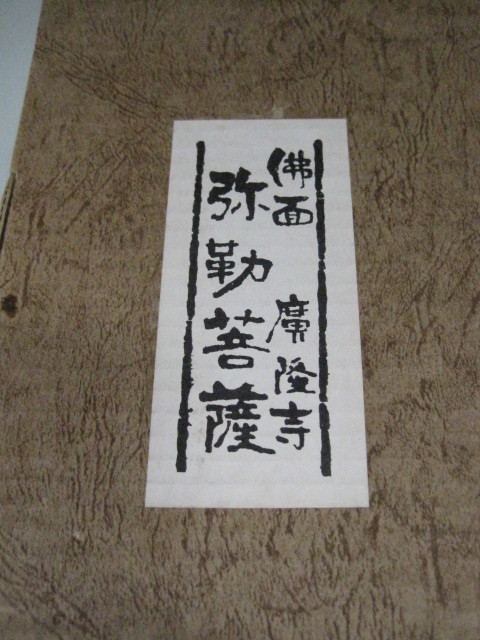 佛面 廣隆寺
弥勒菩薩